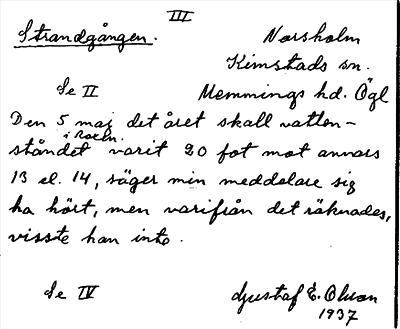 III
Strandgången. Norsholm
Kimstads sn.
Se II Memmings hd. Ögl
Den 5 maj det året skall vatten-
ståndet i Roxen. varit 20 fot mot annars
13 el. 14, säger min meddelare sig
ha hört, men varifrån det räknades,
visste han inte.
Se IV Gustaf E. Olsson
1937